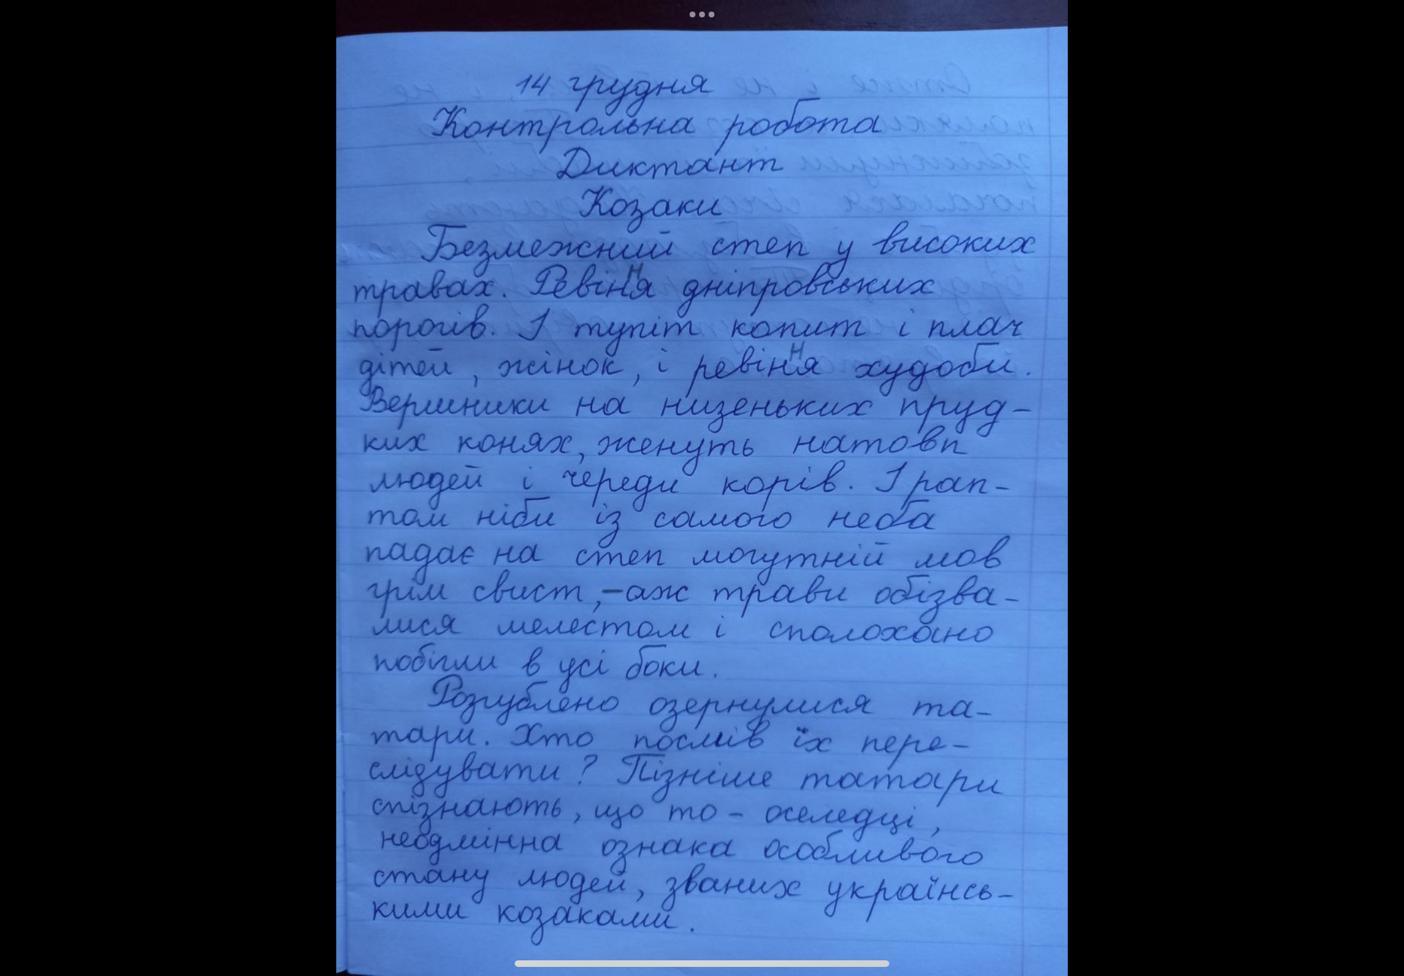 14 грудня
Контрольна робота
Диктант
Козаки
Безмежний степ у високих
травах. Ревіння дніпровських
порогів. І тупіт копит і плач
дітей, жінок, і ревіння худоби.
Вершники на низеньких пруд-
ких конях, женуть натовп
людей і череди корів. І рап-
том ніби із самого неба
падає на степ могутній мов
грім свист,-аж трави обізва-
лися шелестом і сполохано
побігли в усі боки.
Розгублено озернулися та-
тари. Хто посмів їх пере-
слідувати? Пізніше татари
спізнають, що то - оселедці,
неодмінна ознака особливого
стану людей, званих українсь-
кими козаками.